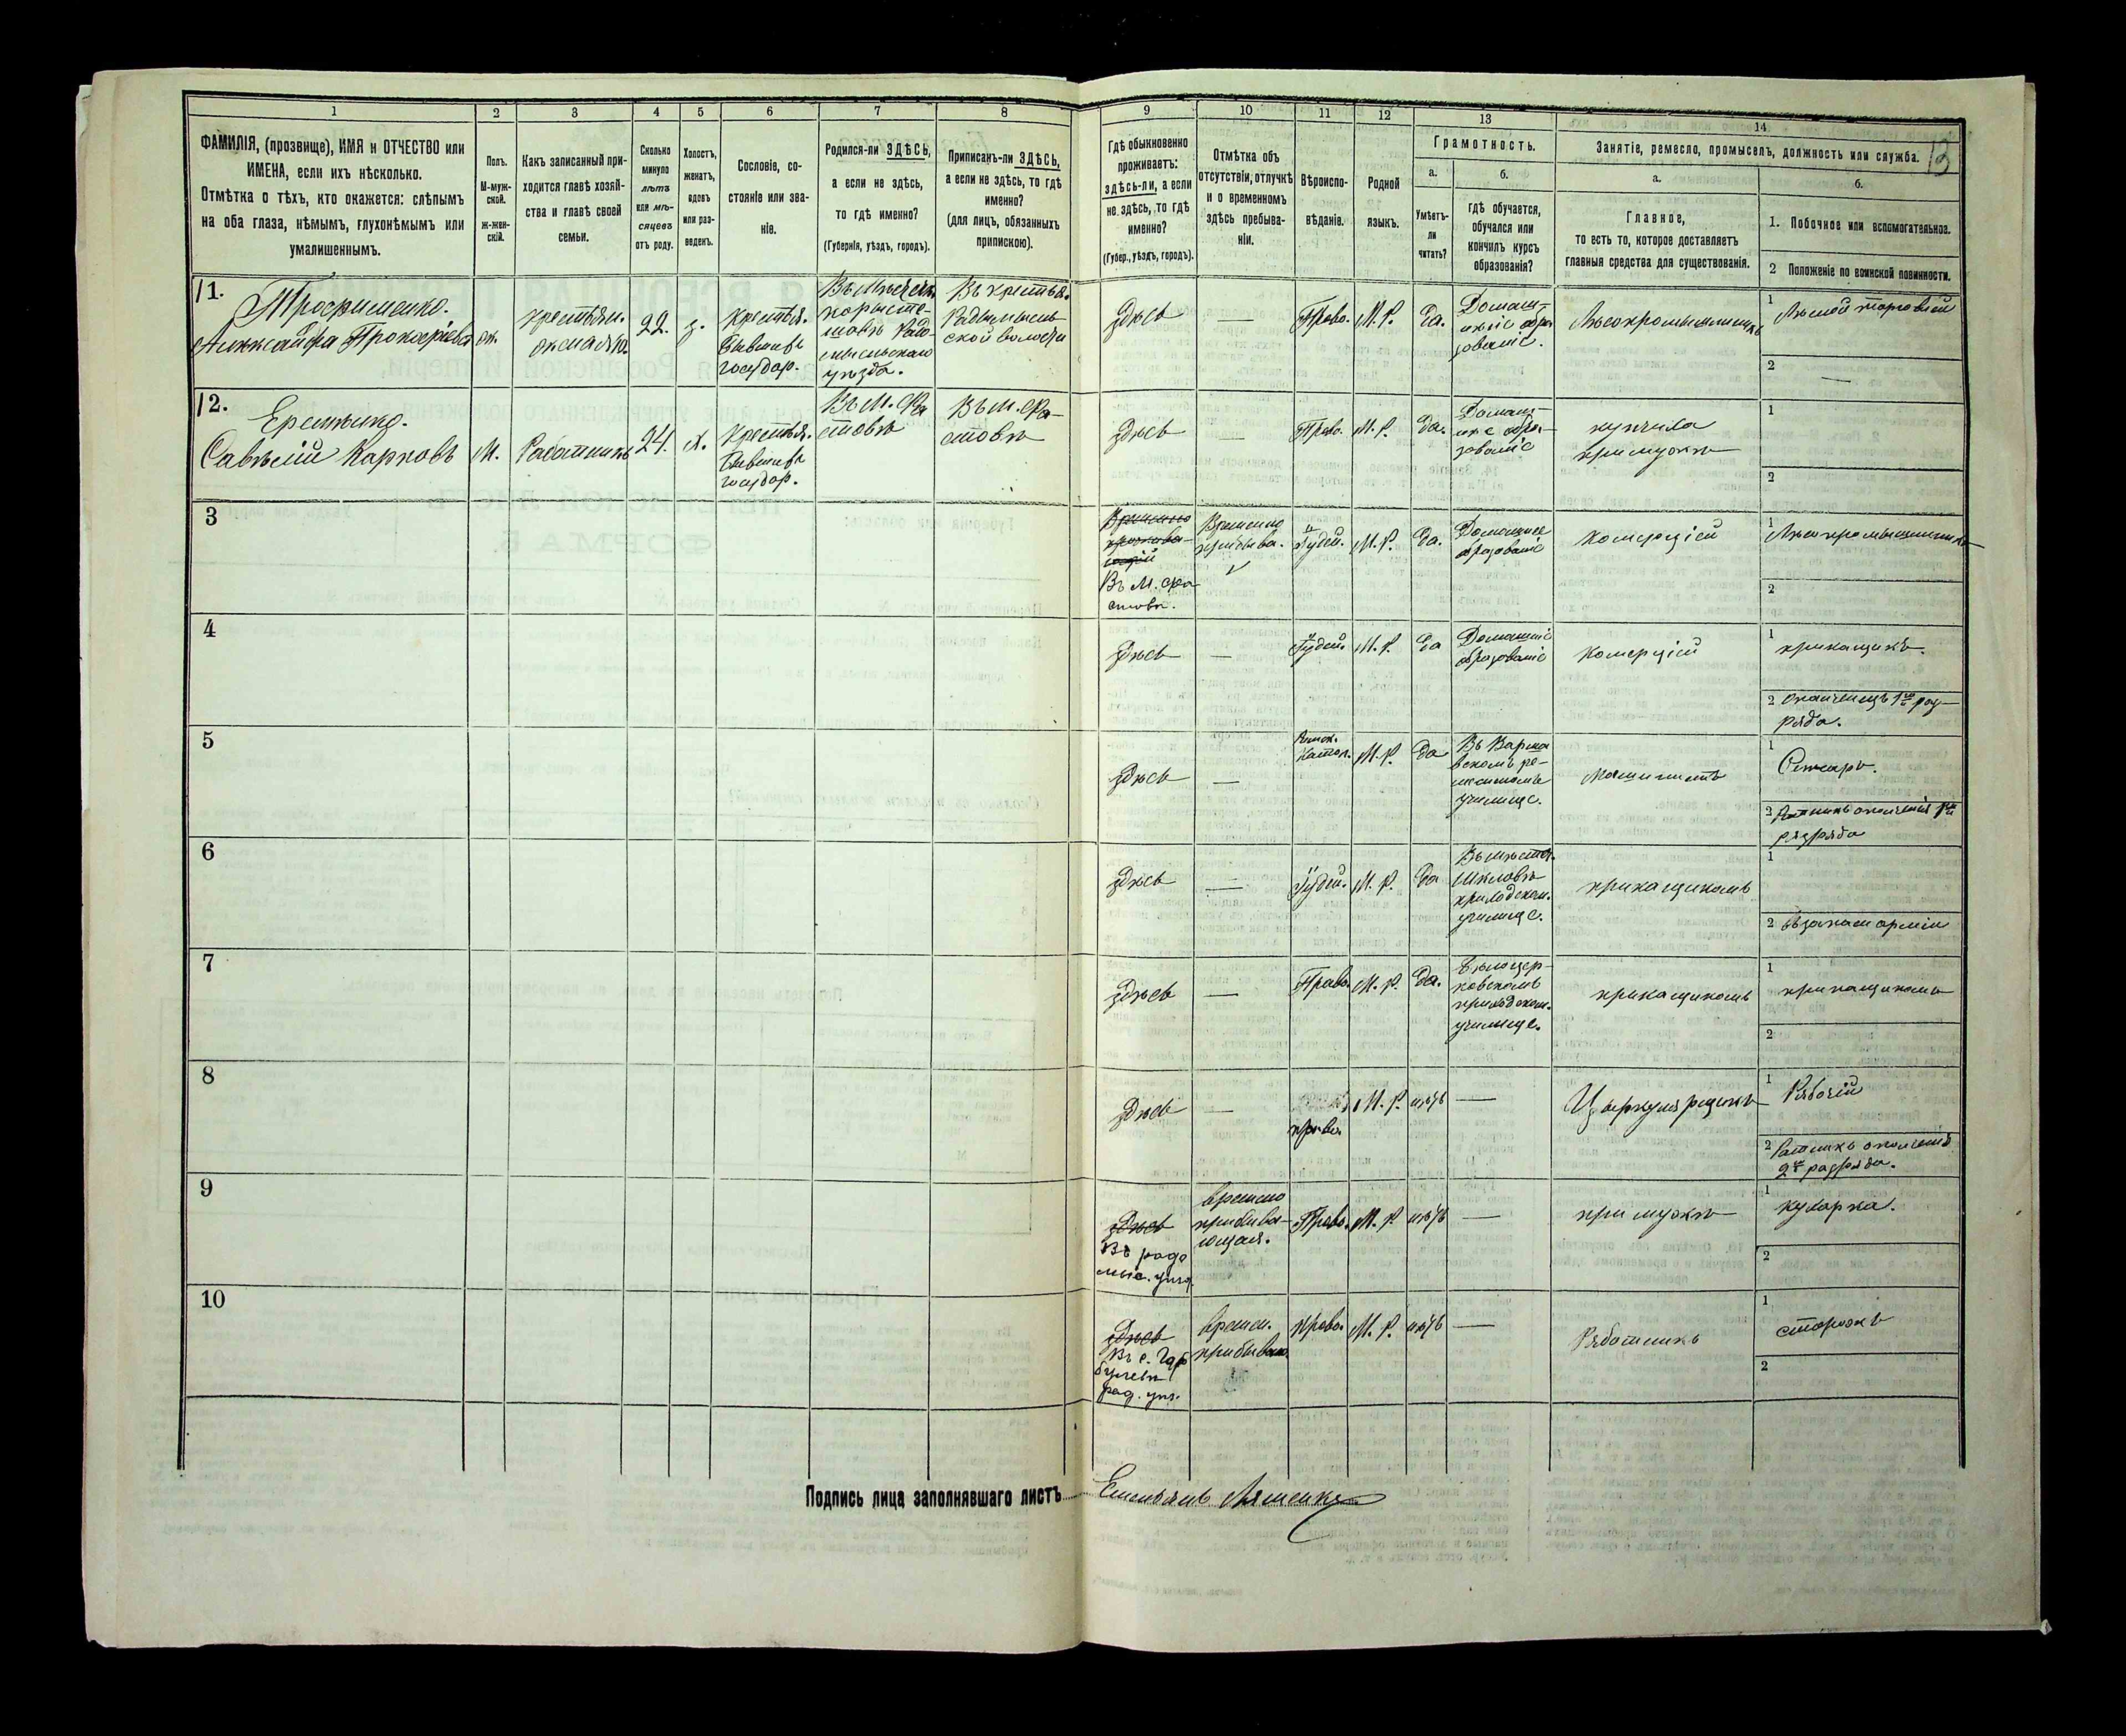 1
2
3
4
5
6
7
8
9
10
11
12
13
14
13
ФАМИЛІЯ, (прозвище), ИМЯ и ОТЧЕСТВО или
ИМЕНА, если ихъ нѣсколько.
Отмѣтка о тѣхъ, кто окажется: слѣпымъ
на оба глаза, нѣмымъ, глухонѣмымъ или
умалишеннымъ.
Полъ.
М-муж-
ской.
ж-жен-
скій.
Какъ записанный при-
ходится главѣ хозяй-
ства и главѣ своей
семьи.
Сколько
минуло
лѣтъ
или мѣ-
сяцевъ
отъ роду.
Холостъ,
женатъ,
вдовъ
или раз-
веденъ.
Сословіе, со-
стояніе или зва-
ніе.
Родился-ли ЗДѢСЬ,
а если не здѣсь,
то гдѣ именно?
(Губернія, уѣздъ, городъ).
Приписанъ-ли ЗДѢСЬ,
а если не здѣсь, то гдѣ
именно?
(для лицъ, обязанныхъ
припискою).
Гдѣ обыкновенно
проживаетъ:
здѣсь-ли, а если
не здѣсь, то гдѣ
именно?
(Губер., уѣздъ, городъ).
Отмѣтка объ
отсутствіи, отлучкѣ
и о временномъ
здѣсь пребыва-
ніи.
Вѣроиспо-
вѣданіе.
Родной
языкъ.
Грамотность.
а.
Умѣетъ-
ли
читать?
б.
гдѣ обучается,
обучался или
кончилъ курсъ
образованія?
Занятіе, ремесло, промыселъ, должность или служба.
а.
Главное,
то есть то, которое доставляетъ
главныя средства для существованія.
б.
1. Побочное или вспомогательное.
2 Положеніе по воинской повинности.
11.
Трофименко.
ж.
22.
з.
Крестья.
бывшихъ
государ.
Здѣсь
—
Право.
М. Р.
Да.
Домаш-
1
2 —
12.
Еременко.
Савѣлій Карповъ
М.
Работникъ
24.
х.
Крестья.
бывшихъ
государ.
Въ М. Фа
стовѣ
Въ М. Фа-
стовѣ
Здѣсь
—
Право.
М. Р.
Да.
Домаш-
нее обра-
зованіе
при мужѣ
1
2
3
Въ М. Фа
стовѣ.
Временно
пребыва.
Іудей.
М. Р.
Да.
Домашнее
образованіе
Комерціей
1 Лѣсопромышленникъ
2
4
Здѣсь
—
Іудей.
М. Р.
Да
Домашнее
образованіе
Комерціей
1 прикащикъ.
2 ополченецъ 1го раз-
ряда.
5
Здѣсь
—
Римск.
Катол.
М. Р.
Да
Въ Варша
вскомъ ре-
месленомъ
училище.
Машинистъ
1 Слесарь.
2 Ратникъ ополченія 1го
разряда
6
Здѣсь
—
Іудей.
М. Р.
Да
Въ мѣстеч.
Шкловѣ
приходском.
училище.
прикащикомъ
1
2 въ запасѣ арміи
7
Здѣсь
—
Право.
М. Р.
Да.
Бѣлоцер-
ковскомъ
приходском.
училище.
прикащикомъ
1 прикащикомъ
2
8
Здѣсь
—
право.
М. Р.
нѣтъ
—
1 Рабочій
2 Ратникъ ополченія
2го разряда.
9
Здѣсь
Въ радо
мыс. уѣзд.
временно
пребыва-
ющая.
Право.
М. Р.
нѣтъ
—
при мужѣ
1 кухарка.
2
10
Здѣсь
рад. уѣз.
времен.
пребываю.
Право.
М. Р.
нѣтъ
—
Работникъ
1 сторожъ
2
Подпись лица заполнявшаго листъ
Емельянъ Ляшенко